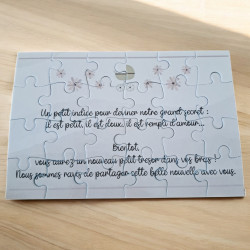 Un petit indice pour deviner notre grand secret :
il est petit, il est doux, il est rempli d'amour...
Bientôt,
vous aurez un nouveau p'tit trésor dans vos bras !
Nous sommes ravis de partager cette belle nouvelle avec vous.